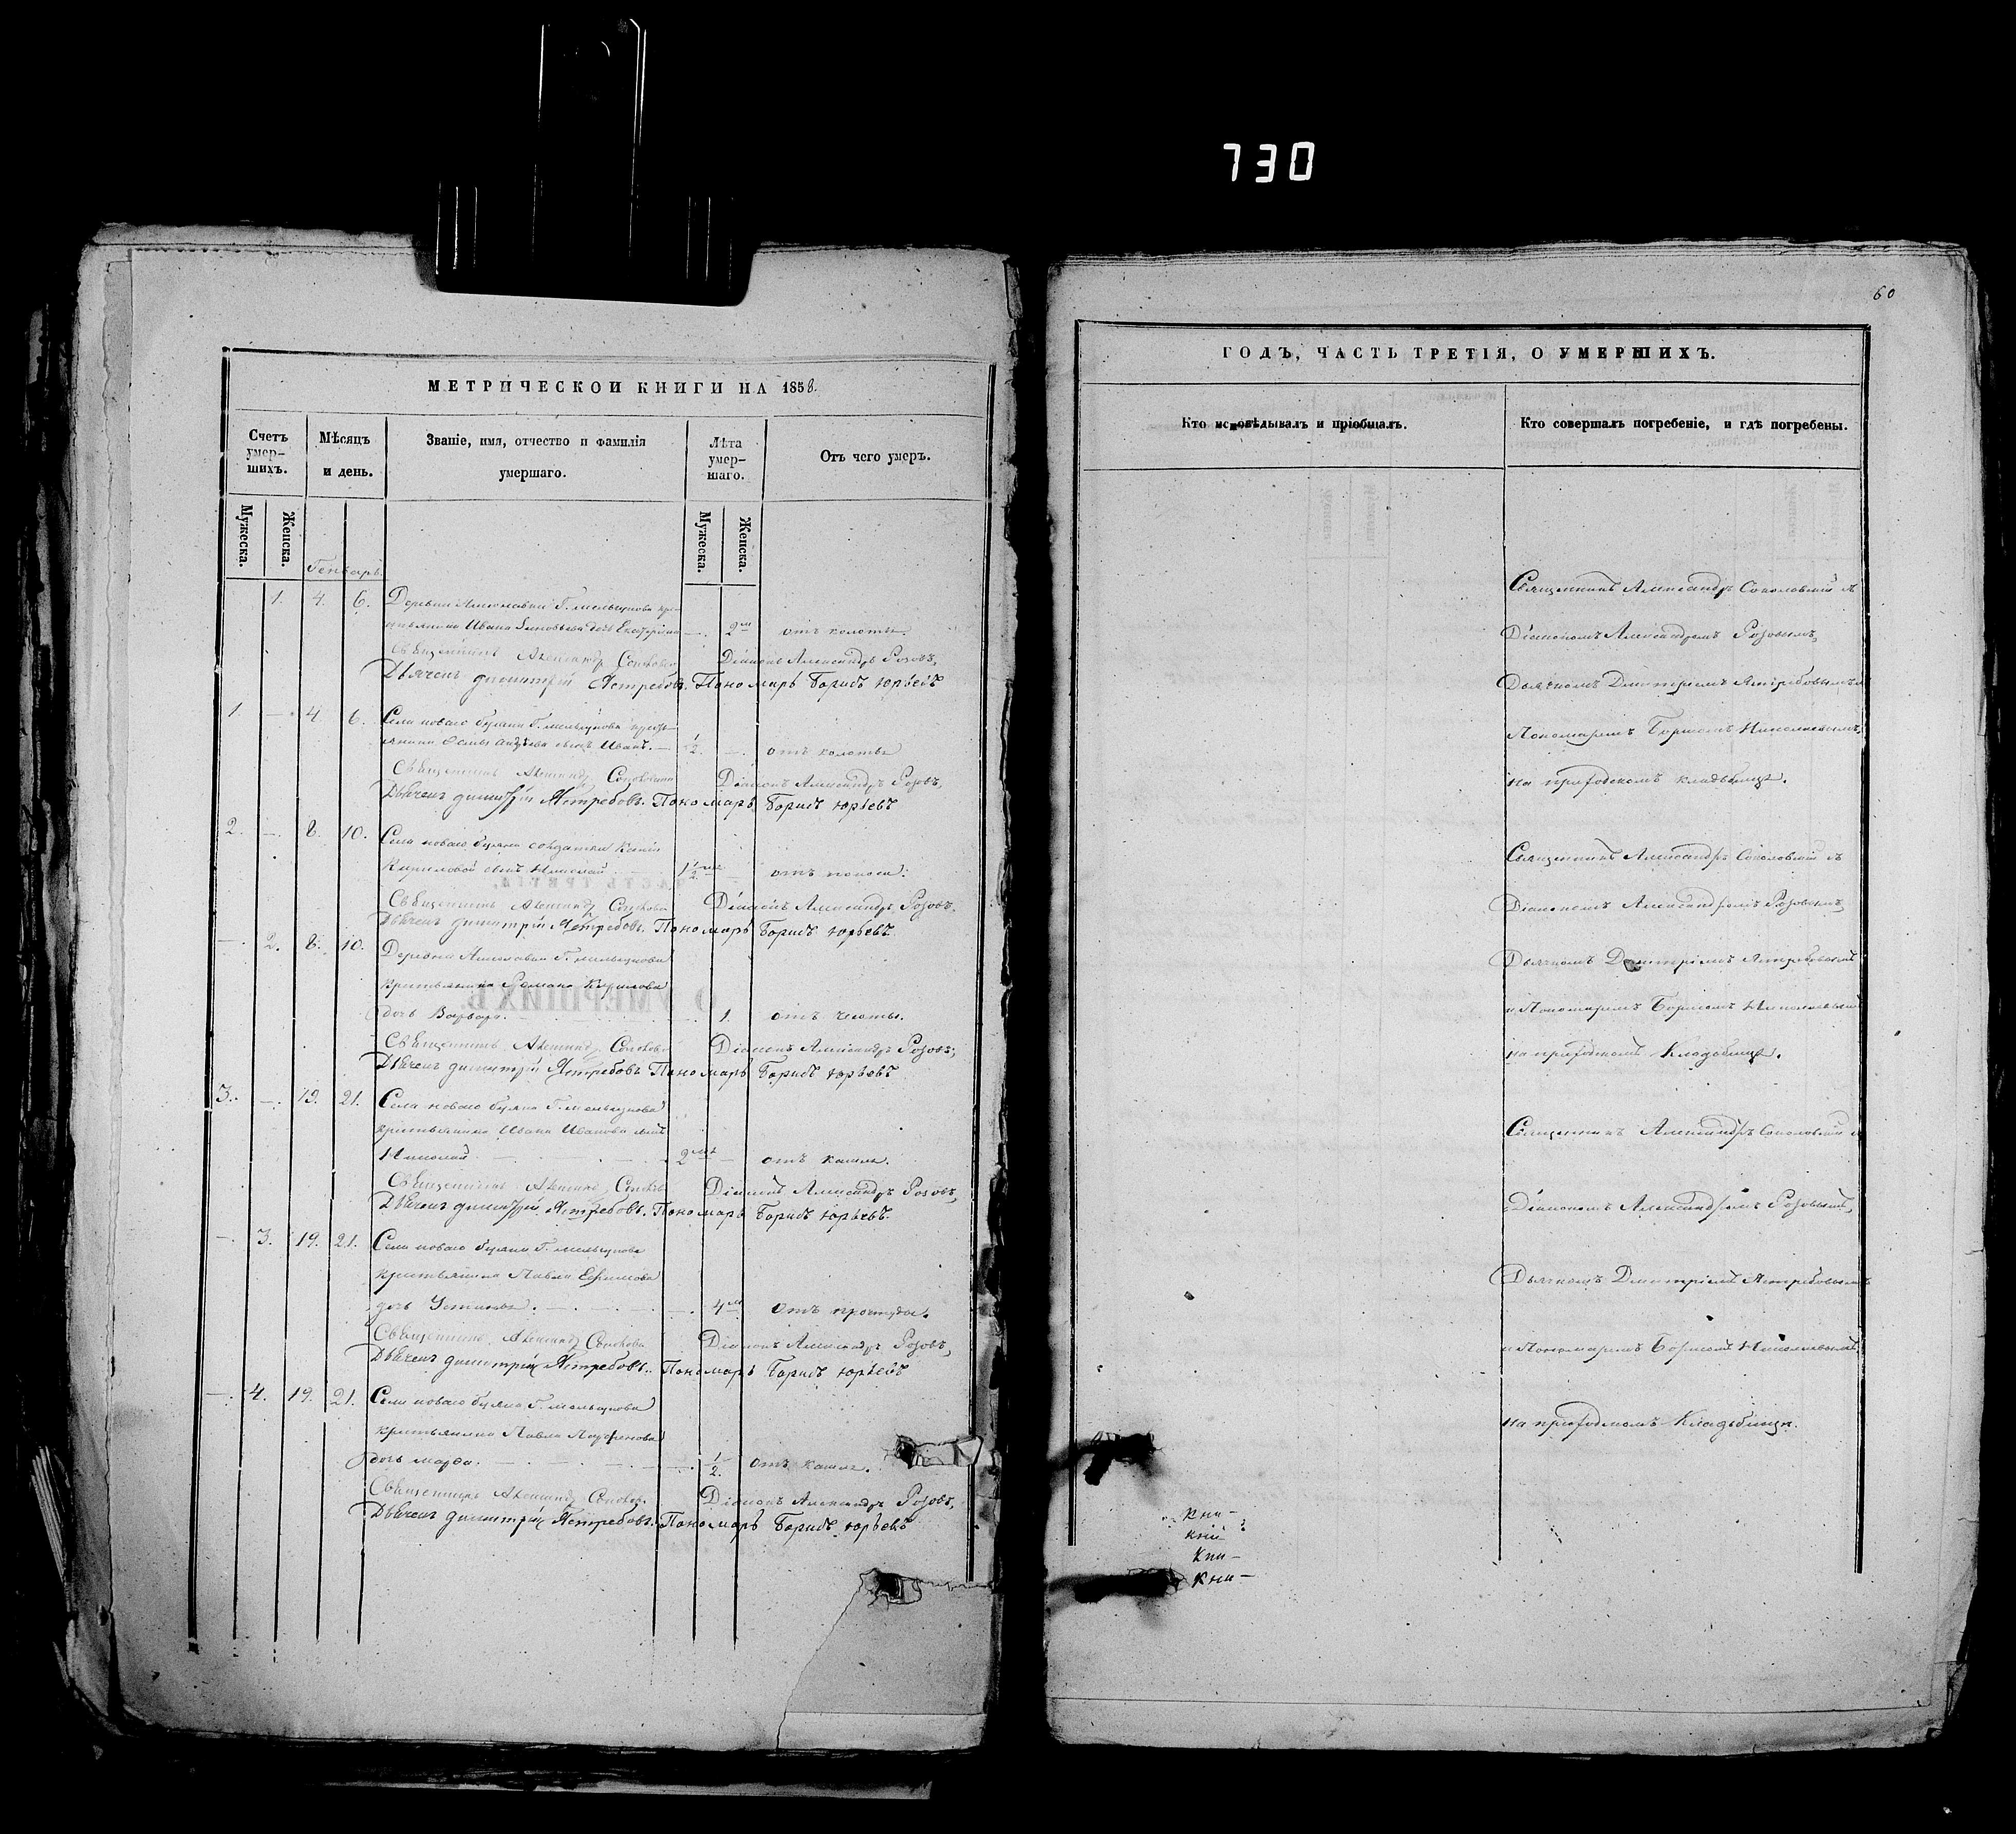 730
МЕТРИЧЕСКОЙ КНИГИ НА 1858.
Счетъ умер-шихъ.
Мѣсяцъ и день.
Званіе, имя, отчество и фамилія умершаго.
Лѣта умер-шаго.
Отъ чего умеръ.
Мужеска.
Женска.
Мужеска.
Женска.
Генварь.
1. 4. 6. Деревни Г. Мельгунова кре-
стьянина Ивана дочь Екатерина —. 2 м отъ колотья.
Священникъ Александръ Діаконъ Александръ Розовъ,
Дьячекъ Димитрій Ястребовъ. Пономарь Борисъ Юрьевъ
1. — 4. 6. Села новаго Г. Мельгунова кресть-
янина сынъ Иванъ. — 1/2. —. отъ колотья
Священникъ Александръ Діаконъ Александръ Розовъ,
Дьячекъ Димитрій Ястребовъ. Пономарь Борисъ Юрьевъ
2. —. 8. 10. Села новаго солдатки
Кириловой сынъ Николай 1 1/2 — отъ поноса.
Священникъ Александръ Діаконъ Александръ Розовъ,
Дьячекъ Димитрій Ястребовъ. Пономарь Борисъ Юрьевъ
—. 2. 8. 10. Деревни Г. Мельгунова
крестьянина Романа Кирилова
дочь Варвара. 1. отъ
Священникъ Александръ Діаконъ Александръ Розовъ,
Дьячекъ Димитрій Ястребовъ Пономарь Борисъ Юрьевъ
3. —. 19. 21. Села новаго Г. Мельгунова
крестьянина Ивана Иванова сынъ
Николай 2 — отъ кашля.
Священникъ Александръ Діаконъ Александръ Розовъ,
Дьячекъ Димитрій Ястребовъ. Пономарь Борисъ Юрьевъ.
—. 3. 19. 21. Села новаго Г. Мельгунова
крестьянина Павла Ефимова
дочь Устинья. —. 4 м отъ простуды.
Священникъ Александръ Діаконъ Александръ Розовъ,
Дьячекъ Димитрій Ястребовъ. Пономарь Борисъ Юрьевъ
—. 4. 19. 21. Села новаго Г. Мельгунова
крестьянина Павла
дочь Марфа. 1/2. отъ кашля.
Священникъ Александръ Діаконъ Александръ Розовъ,
Дьячекъ Димитрій Ястребовъ. Пономарь Борисъ Юрьевъ
60
ГОДЪ, ЧАСТЬ ТРЕТІЯ, О УМЕРШИХЪ.
Кто исповѣдывалъ и пріобщалъ.
Кто совершалъ погребеніе, и гдѣ погребены.
Священникъ Александръ Соколовскій съ
Діакономъ Александромъ Розовымъ,
Дьячкомъ Дмитріемъ Ястребовымъ и
Пономаремъ Борисомъ Николаевымъ,
на приходскомъ кладбище.
Священникъ Александръ Соколовскій съ
Діакономъ Александромъ Розовымъ,
Дьячкомъ Дмитріемъ Ястребовымъ
и Пономаремъ Борисомъ Николаевымъ
на приходскомъ кладбище.
Священникъ Александръ Соколовскій съ
Діакономъ Александромъ Розовымъ,
Дьячкомъ Дмитріемъ Ястребовымъ
и Пономаремъ Борисомъ Николаевымъ
на приходскомъ Кладбище.
Кни-
кни-
Кни-
Кни-